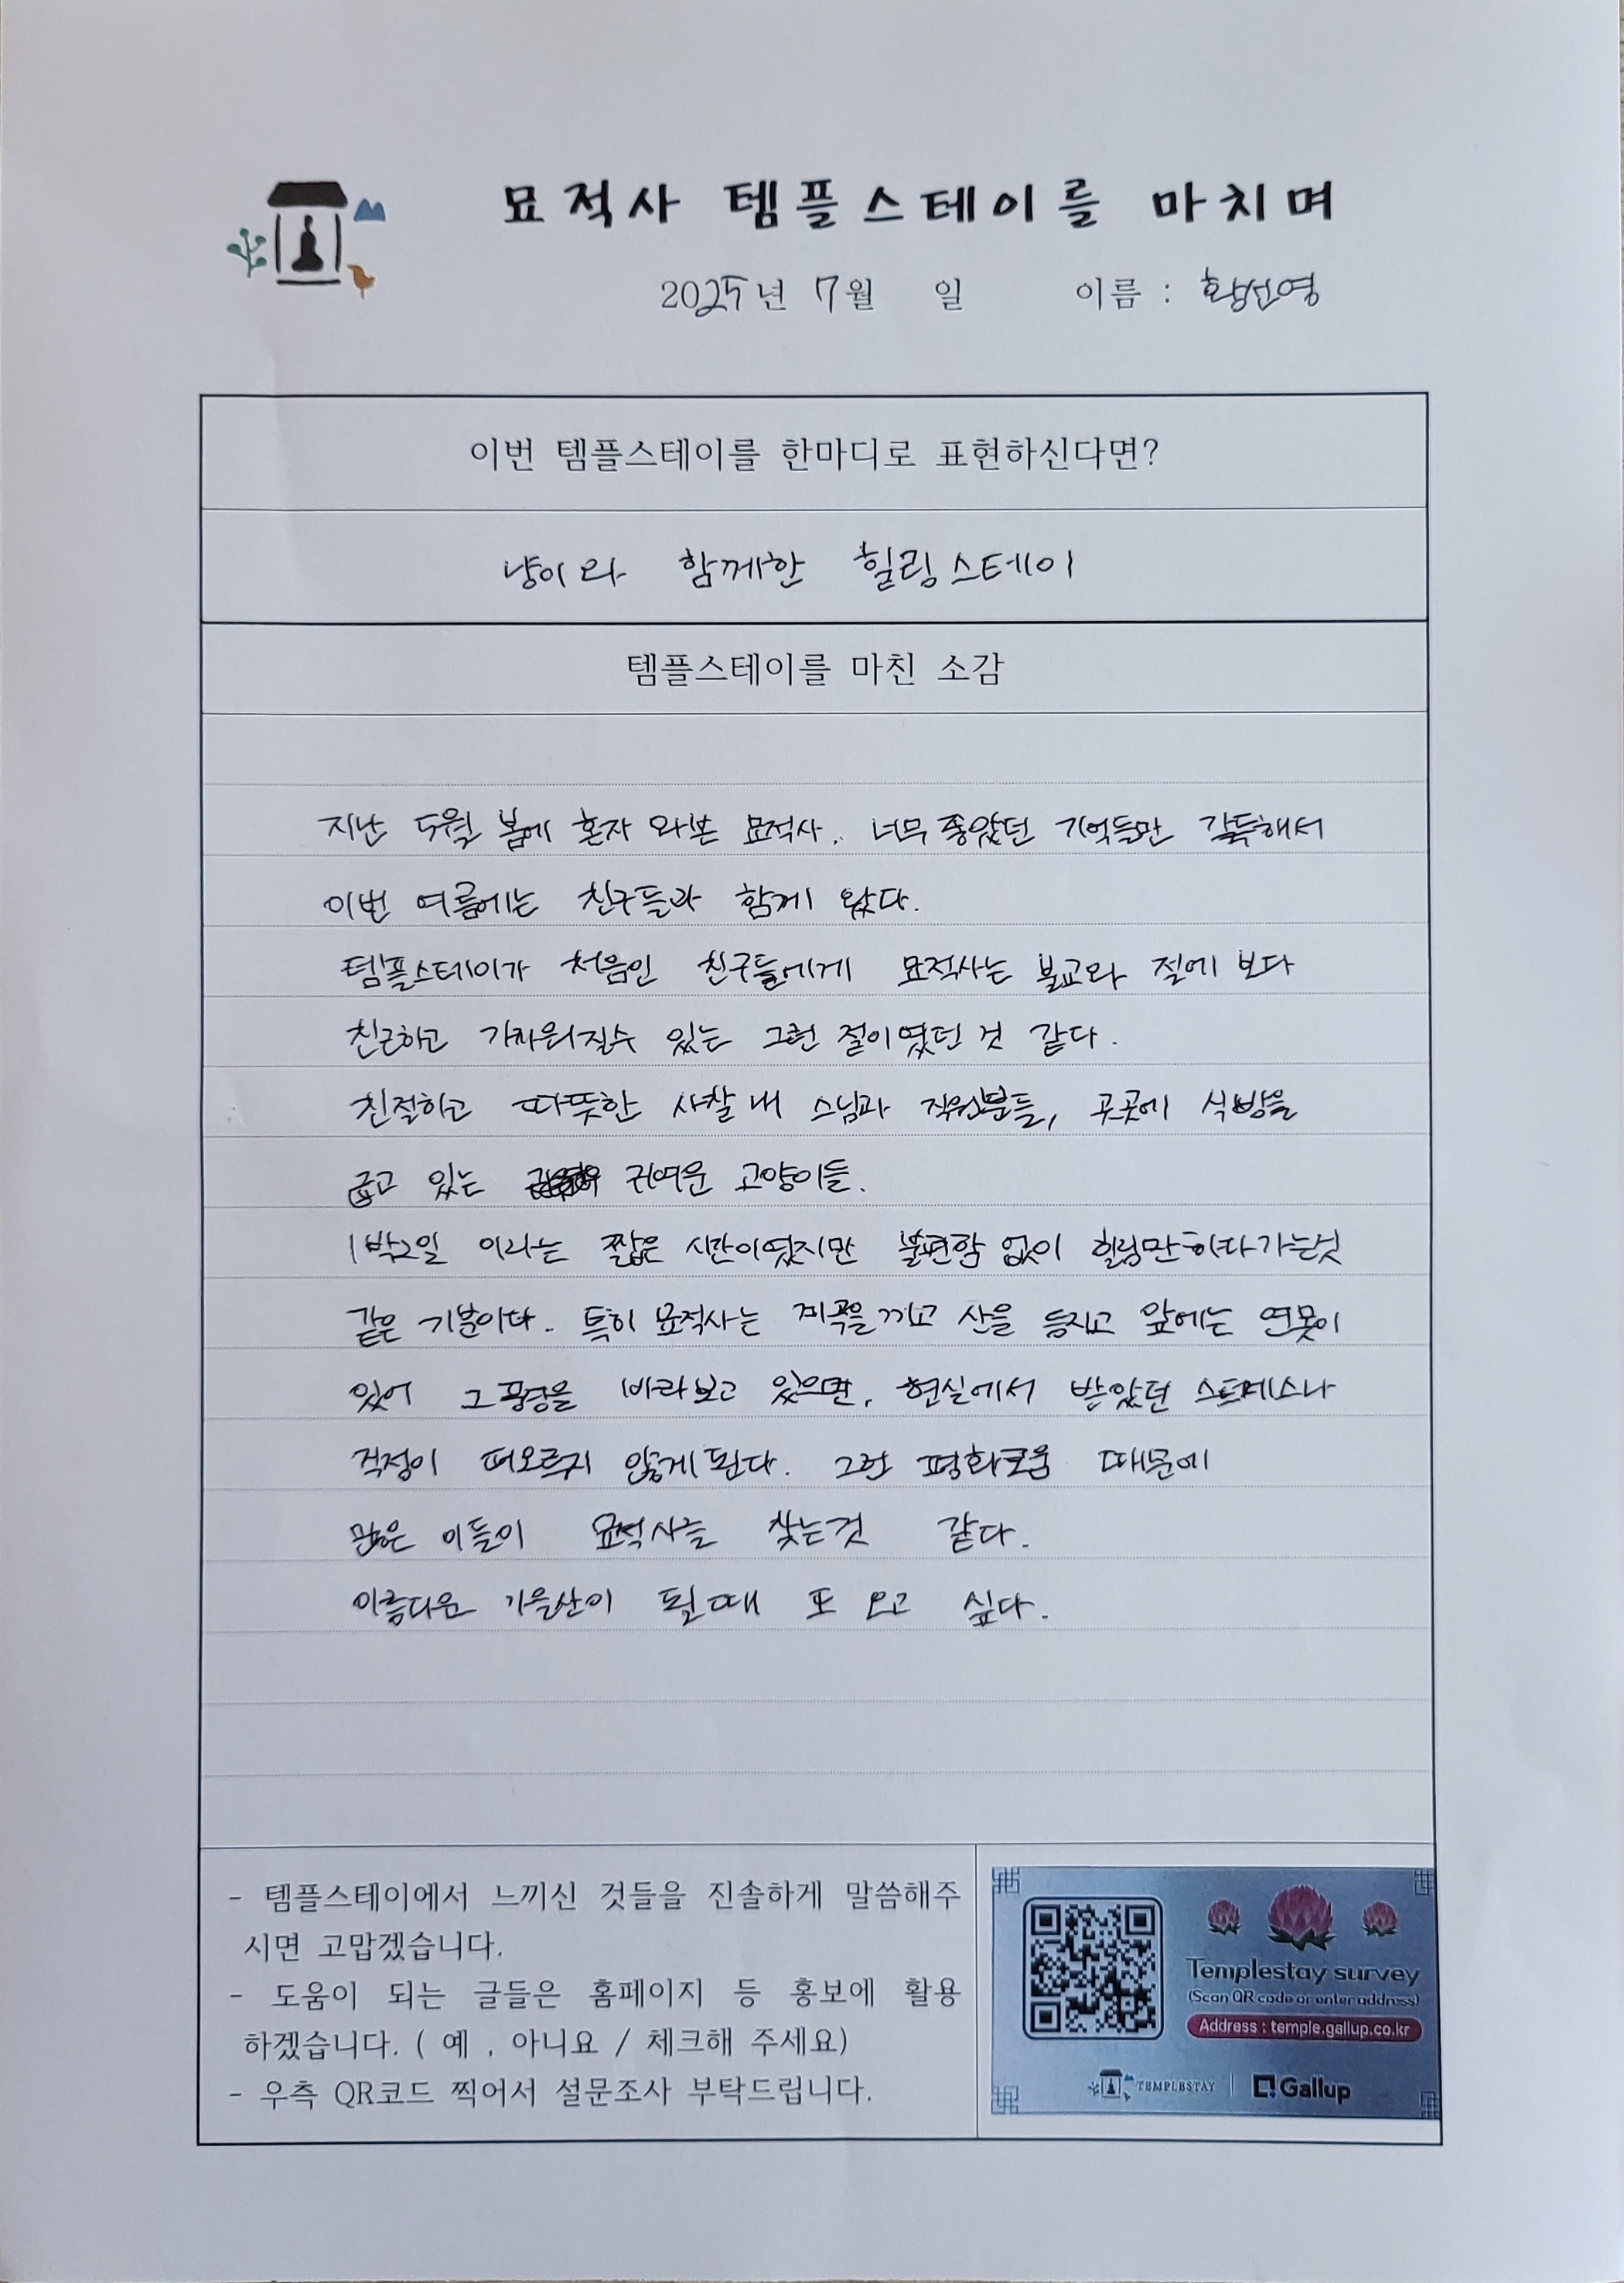 묘적사 템플스테이를 마치며
2025년 7월 일 이름 : 황선영
이번 템플스테이를 한마디로 표현하신다면?
냥이와 함께한 힐링스테이
템플스테이를 마친 소감
지난 5월 봄에 혼자 와본 묘적사. 너무 좋았던 기억들만 가득해서
이번 여름에는 친구들과 함께 왔다.
템플스테이가 처음인 친구들에게 묘적사는 불교와 절에 보다
친근하고 가까워질수 있는 그런 절이였던 것 같다.
친절하고 따뜻한 사찰 내 스님과 직원분들, 곳곳에 식빵을
굽고 있는 귀여운 고양이들.
1박2일 이라는 짧은 시간이였지만 불편함 없이 힐링만 하다 가는것
같은 기분이다. 특히 묘적사는 계곡을 끼고 산을 등지고 앞에는 연못이
있어 그 풍경을 바라보고 있으면, 현실에서 받았던 스트레스나
걱정이 떠오르지 않게 된다. 그런 평화로움 때문에
많은 이들이 묘적사를 찾는것 같다.
아름다운 가을산이 필때 또 오고 싶다.
- 템플스테이에서 느끼신 것들을 진솔하게 말씀해주
시면 고맙겠습니다.
- 도움이 되는 글들은 홈페이지 등 홍보에 활용
하겠습니다. ( 예 , 아니요 / 체크해 주세요)
- 우측 QR코드 찍어서 설문조사 부탁드립니다.
Templestay survey
(Scan QR code or enter address)
Address : temple.gallup.co.kr
TEMPLESTAY Gallup